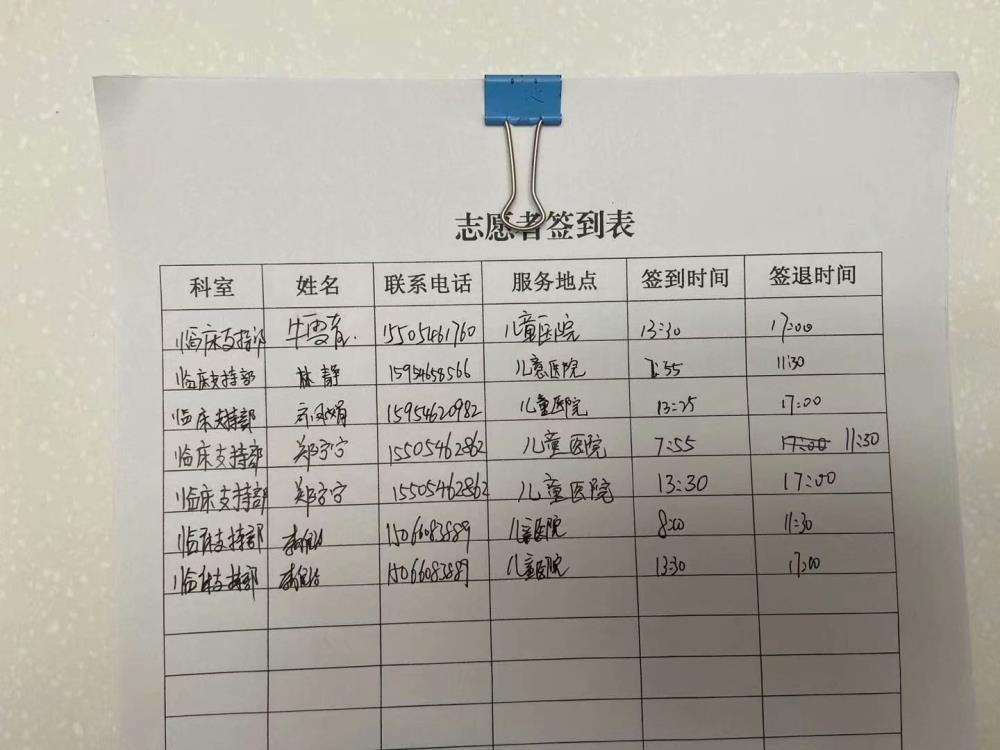 志愿者签到表
科室 姓名 联系电话 服务地点 签到时间 签退时间
临床支持部 牛雪 15505461760 儿童医院 13:30 17:00
临床支持部 林静 15954658566 儿童医院 7:55 11:30
临床支持部 15954620982 儿童医院 13:25 17:00
临床支持部 郑宁宁 15505462862 儿童医院 7:55 17:00 11:30
临床支持部 郑宁宁 15505462862 儿童医院 13:30 17:00
临床支持部 儿童医院 8:00 11:30
临床支持部 儿童医院 13:30 17:00